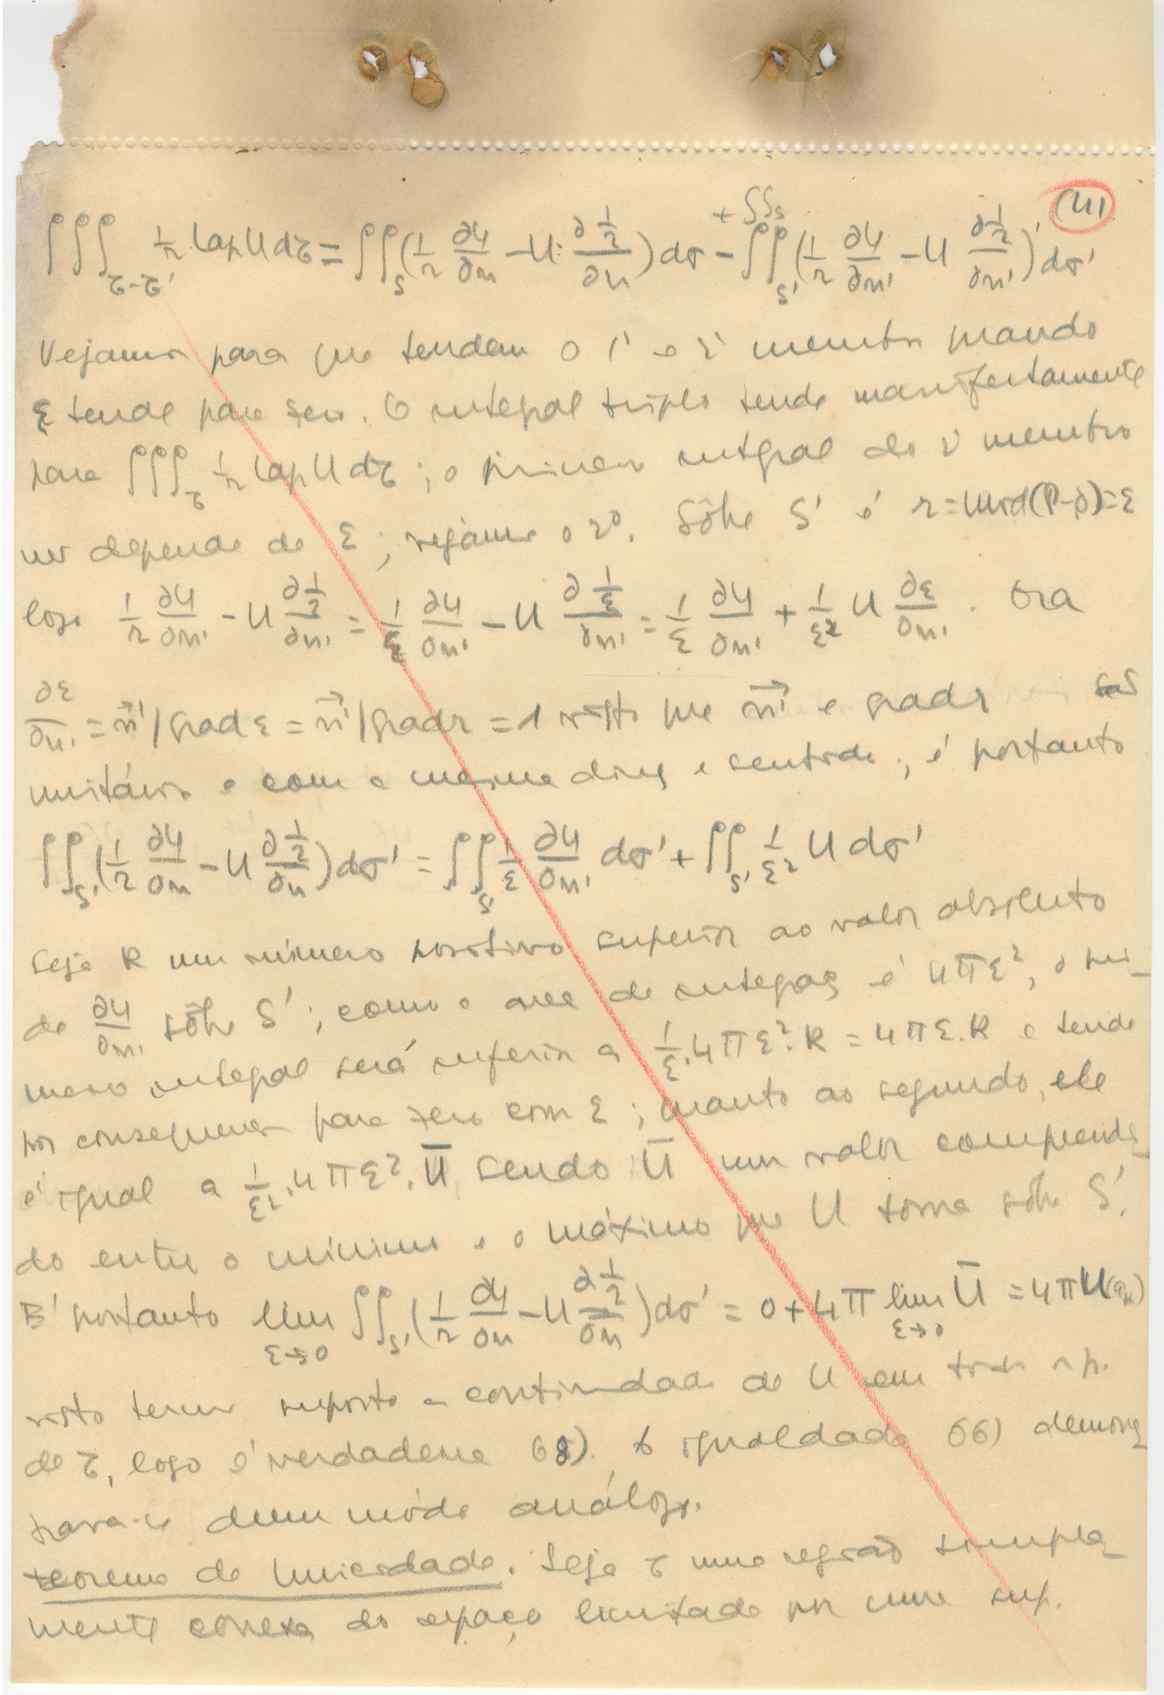 (41)
+ ∫∫s
∫∫∫τ-τ' 1/r lap U dτ = ∫∫S (1/r ∂U/∂n - U ∂ 1/r /∂n) dσ - ∫∫S' (1/r ∂U/∂n' - U ∂ 1/r /∂n')' dσ'
Vejamos para que tendem o 1º e 2º membros quando
ε tende para zero. O integral triplo tende manifestamente
para ∫∫∫τ 1/r lap U dτ ; o primeiro integral do 2º membro
não depende de ε ; vejamos o 2º. Sôbre S' é r = mod(P-) = ε
logo 1/r ∂U/∂n' - U ∂ 1/r /∂n' = 1/ε ∂U/∂n' - U ∂ 1/ε /∂n' = 1/ε ∂U/∂n' + 1/ε² U ∂ε/∂n' . Ora
∂ε/∂n' = n⃗'/grad ε = n⃗'/grad r = 1 visto que n⃗' e grad r são
unitários e com a mesma direç e sentido ; é portanto
∫∫S' (1/r ∂U/∂n - U ∂ 1/r /∂n) dσ' = ∫∫S' 1/ε ∂U/∂n' dσ' + ∫∫S' 1/ε² U dσ'
Seja K um número positivo superior ao valor absoluto
de ∂U/∂n' sôbre S' ; como a area de integraç é 4πε², o pri-
meiro integral será inferior a 1/ε . 4πε² . K = 4πε . K e tende
por consequencia para zero com ε ; quanto ao segundo, ele
é igual a 1/ε² . 4πε² . Ū sendo Ū um valor compreendi
do entre o minimo e o máximo que U toma sôbre S'.
E' portanto lim ε→0 ∫∫S' (1/r ∂U/∂n - U ∂ 1/r /∂n) dσ' = 0 + 4π lim ε→0 Ū = 4π U
visto termos suposto a continuidade de U em todos os p.
de τ, logo é verdadeira 68). A igualdade 66) demons
trava-se dum módo análogo.
Teorema de Unicidade. Seja τ uma região simples
mente conexa do espaço limitado por uma sup.